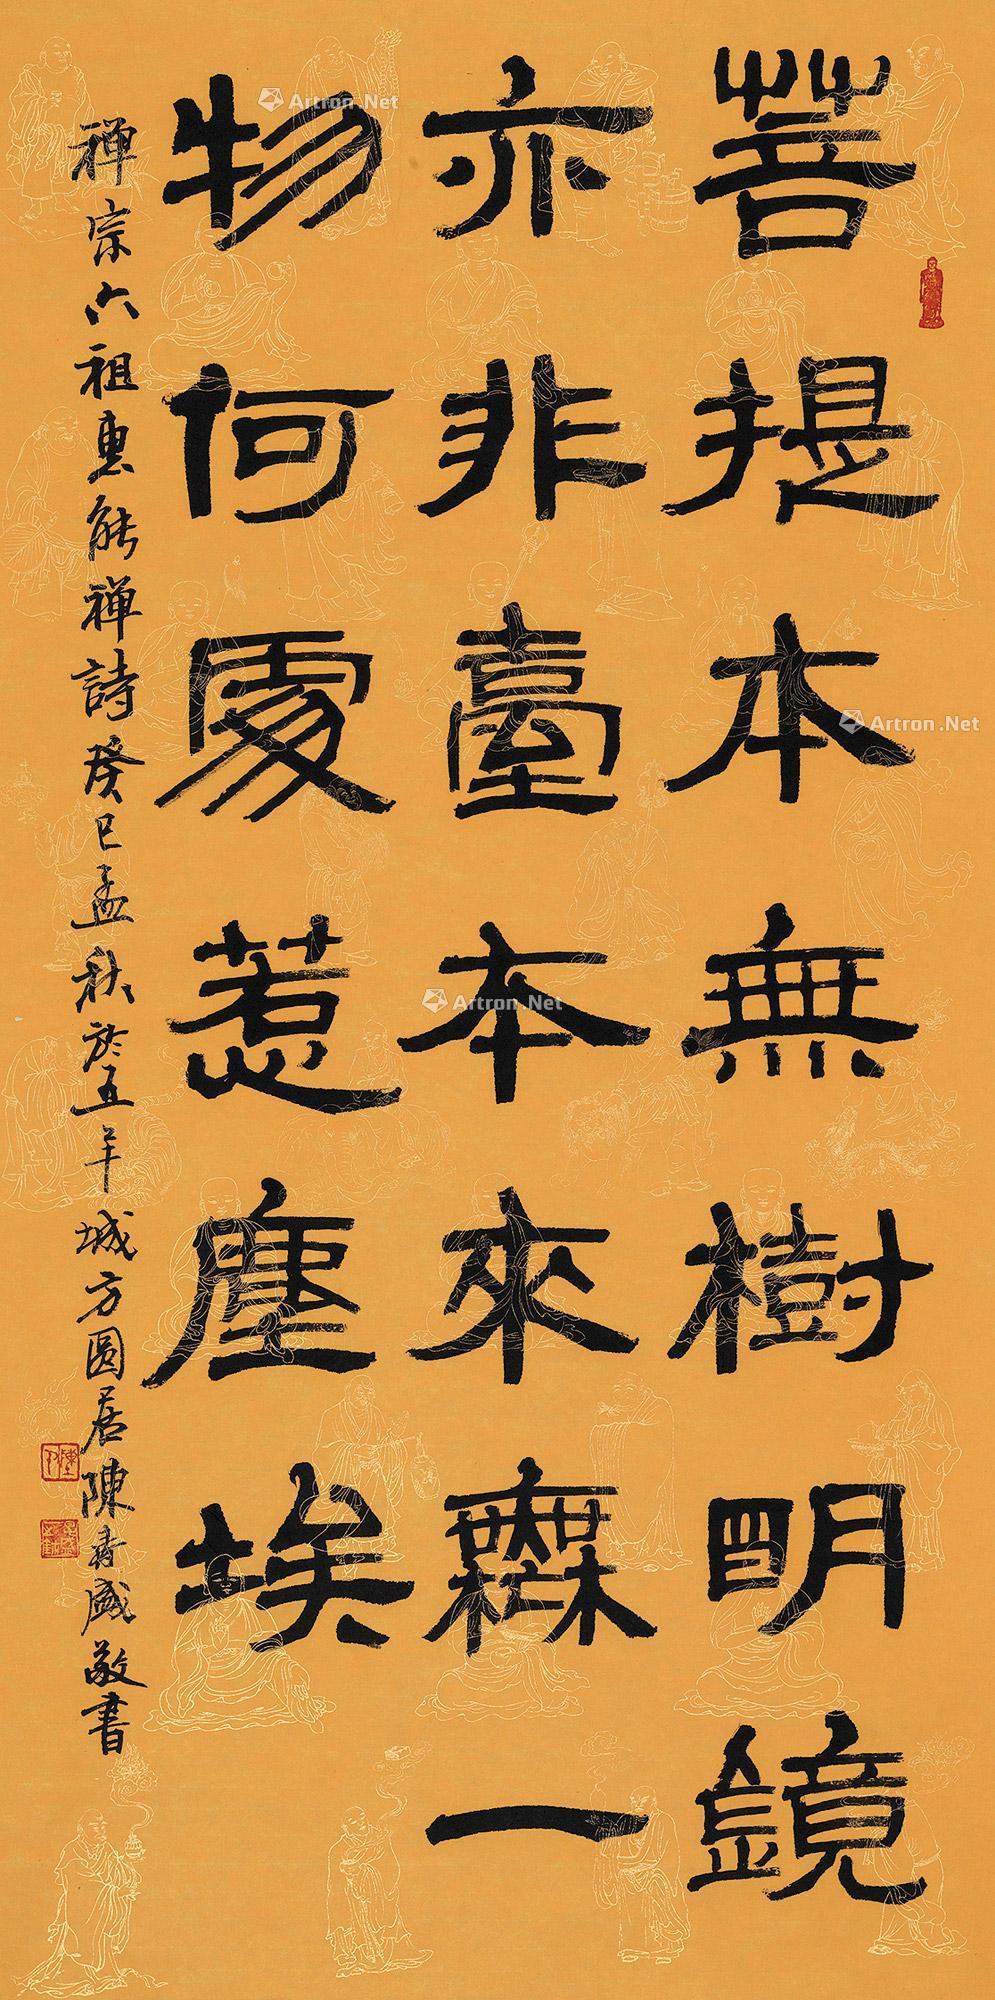 菩提本無樹明鏡
亦非臺本來無一
物何處惹塵埃
禪宗六祖惠能禪詩癸巳孟秋於五羊城方圓居陳壽盛敬書
Artron.Net
Artron.Net
Artron.Net